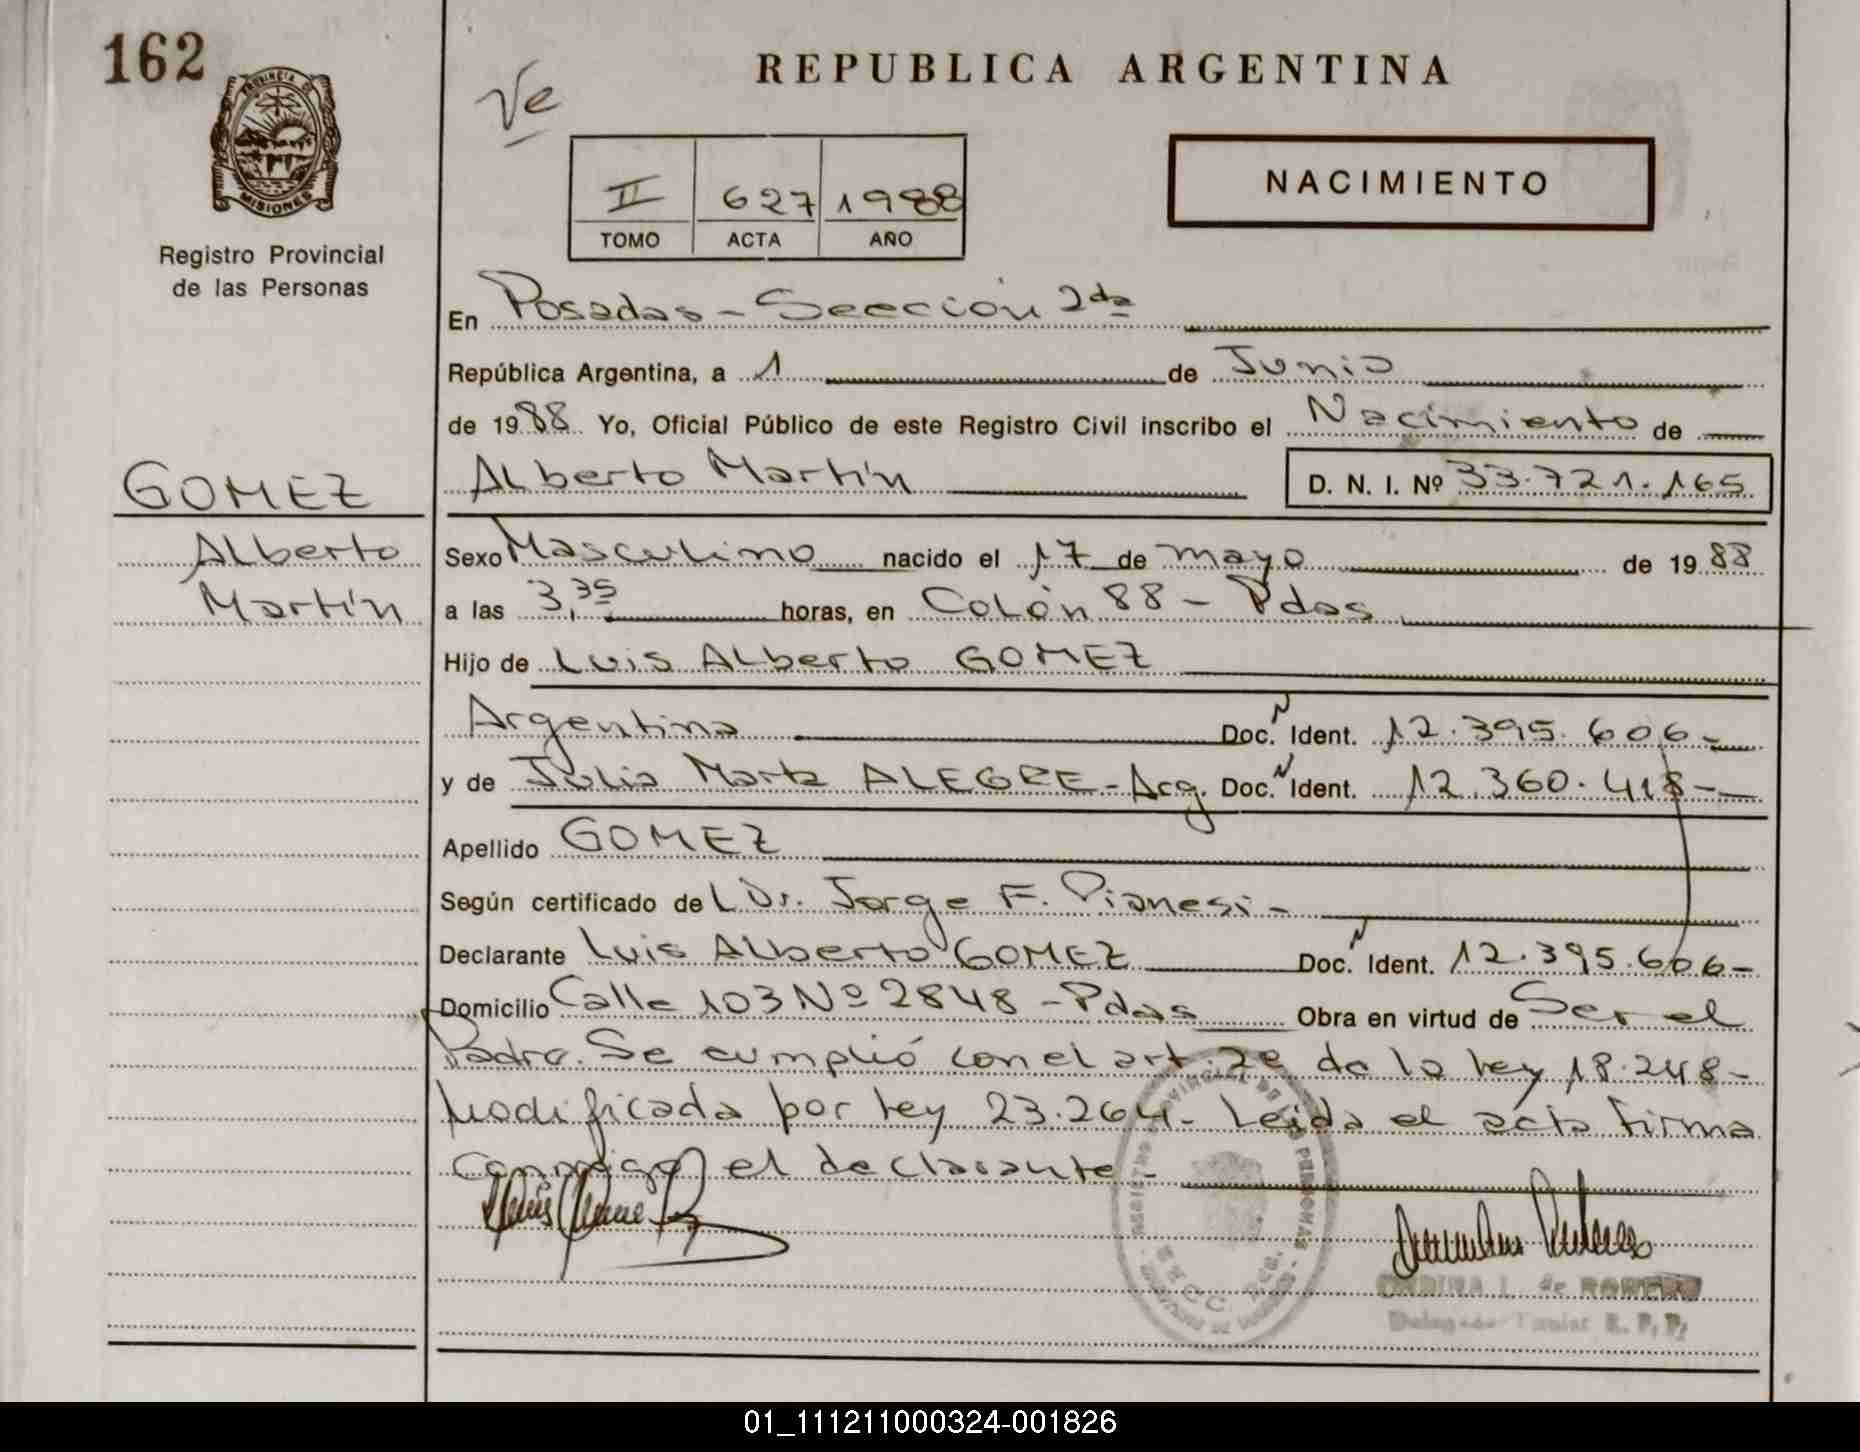 162
REPUBLICA ARGENTINA
Ve
PROVINCIA D
MISIONES
II 627 1988
TOMO ACTA AÑO
NACIMIENTO
Registro Provincial
de las Personas
En Posadas - Sección 2da
República Argentina, a 1 de Junio
de 1988 Yo, Oficial Público de este Registro Civil inscribo el Nacimiento de
GOMEZ
Alberto Martín D. N. I. Nº 33.721.165
Alberto
Martín
Sexo Masculino nacido el 17 de mayo de 1988
a las 3,35 horas, en Colón 88 - Pdas
Hijo de Luis Alberto GOMEZ
Argentina Doc. N Ident. 12.395.606-
y de Julia Marta ALEGRE - Arg. Doc. N Ident. 12.360.418-
Apellido GOMEZ
Según certificado del Dr. Jorge F. Pianesi -
Declarante Luis Alberto GOMEZ Doc. N Ident. 12.395.606-
Domicilio Calle 103 Nº 2848 - Pdas Obra en virtud de Ser el
Padre. Se cumplió con el art. 2º de la Ley 18.248-
Modificada por Ley 23.264. Leída el acta firma
conmigo el declarante -
REGISTRO PROVINCIAL DE LAS PERSONAS
L. de ROMERO
Titular R. P. P.
01_111211000324-001826